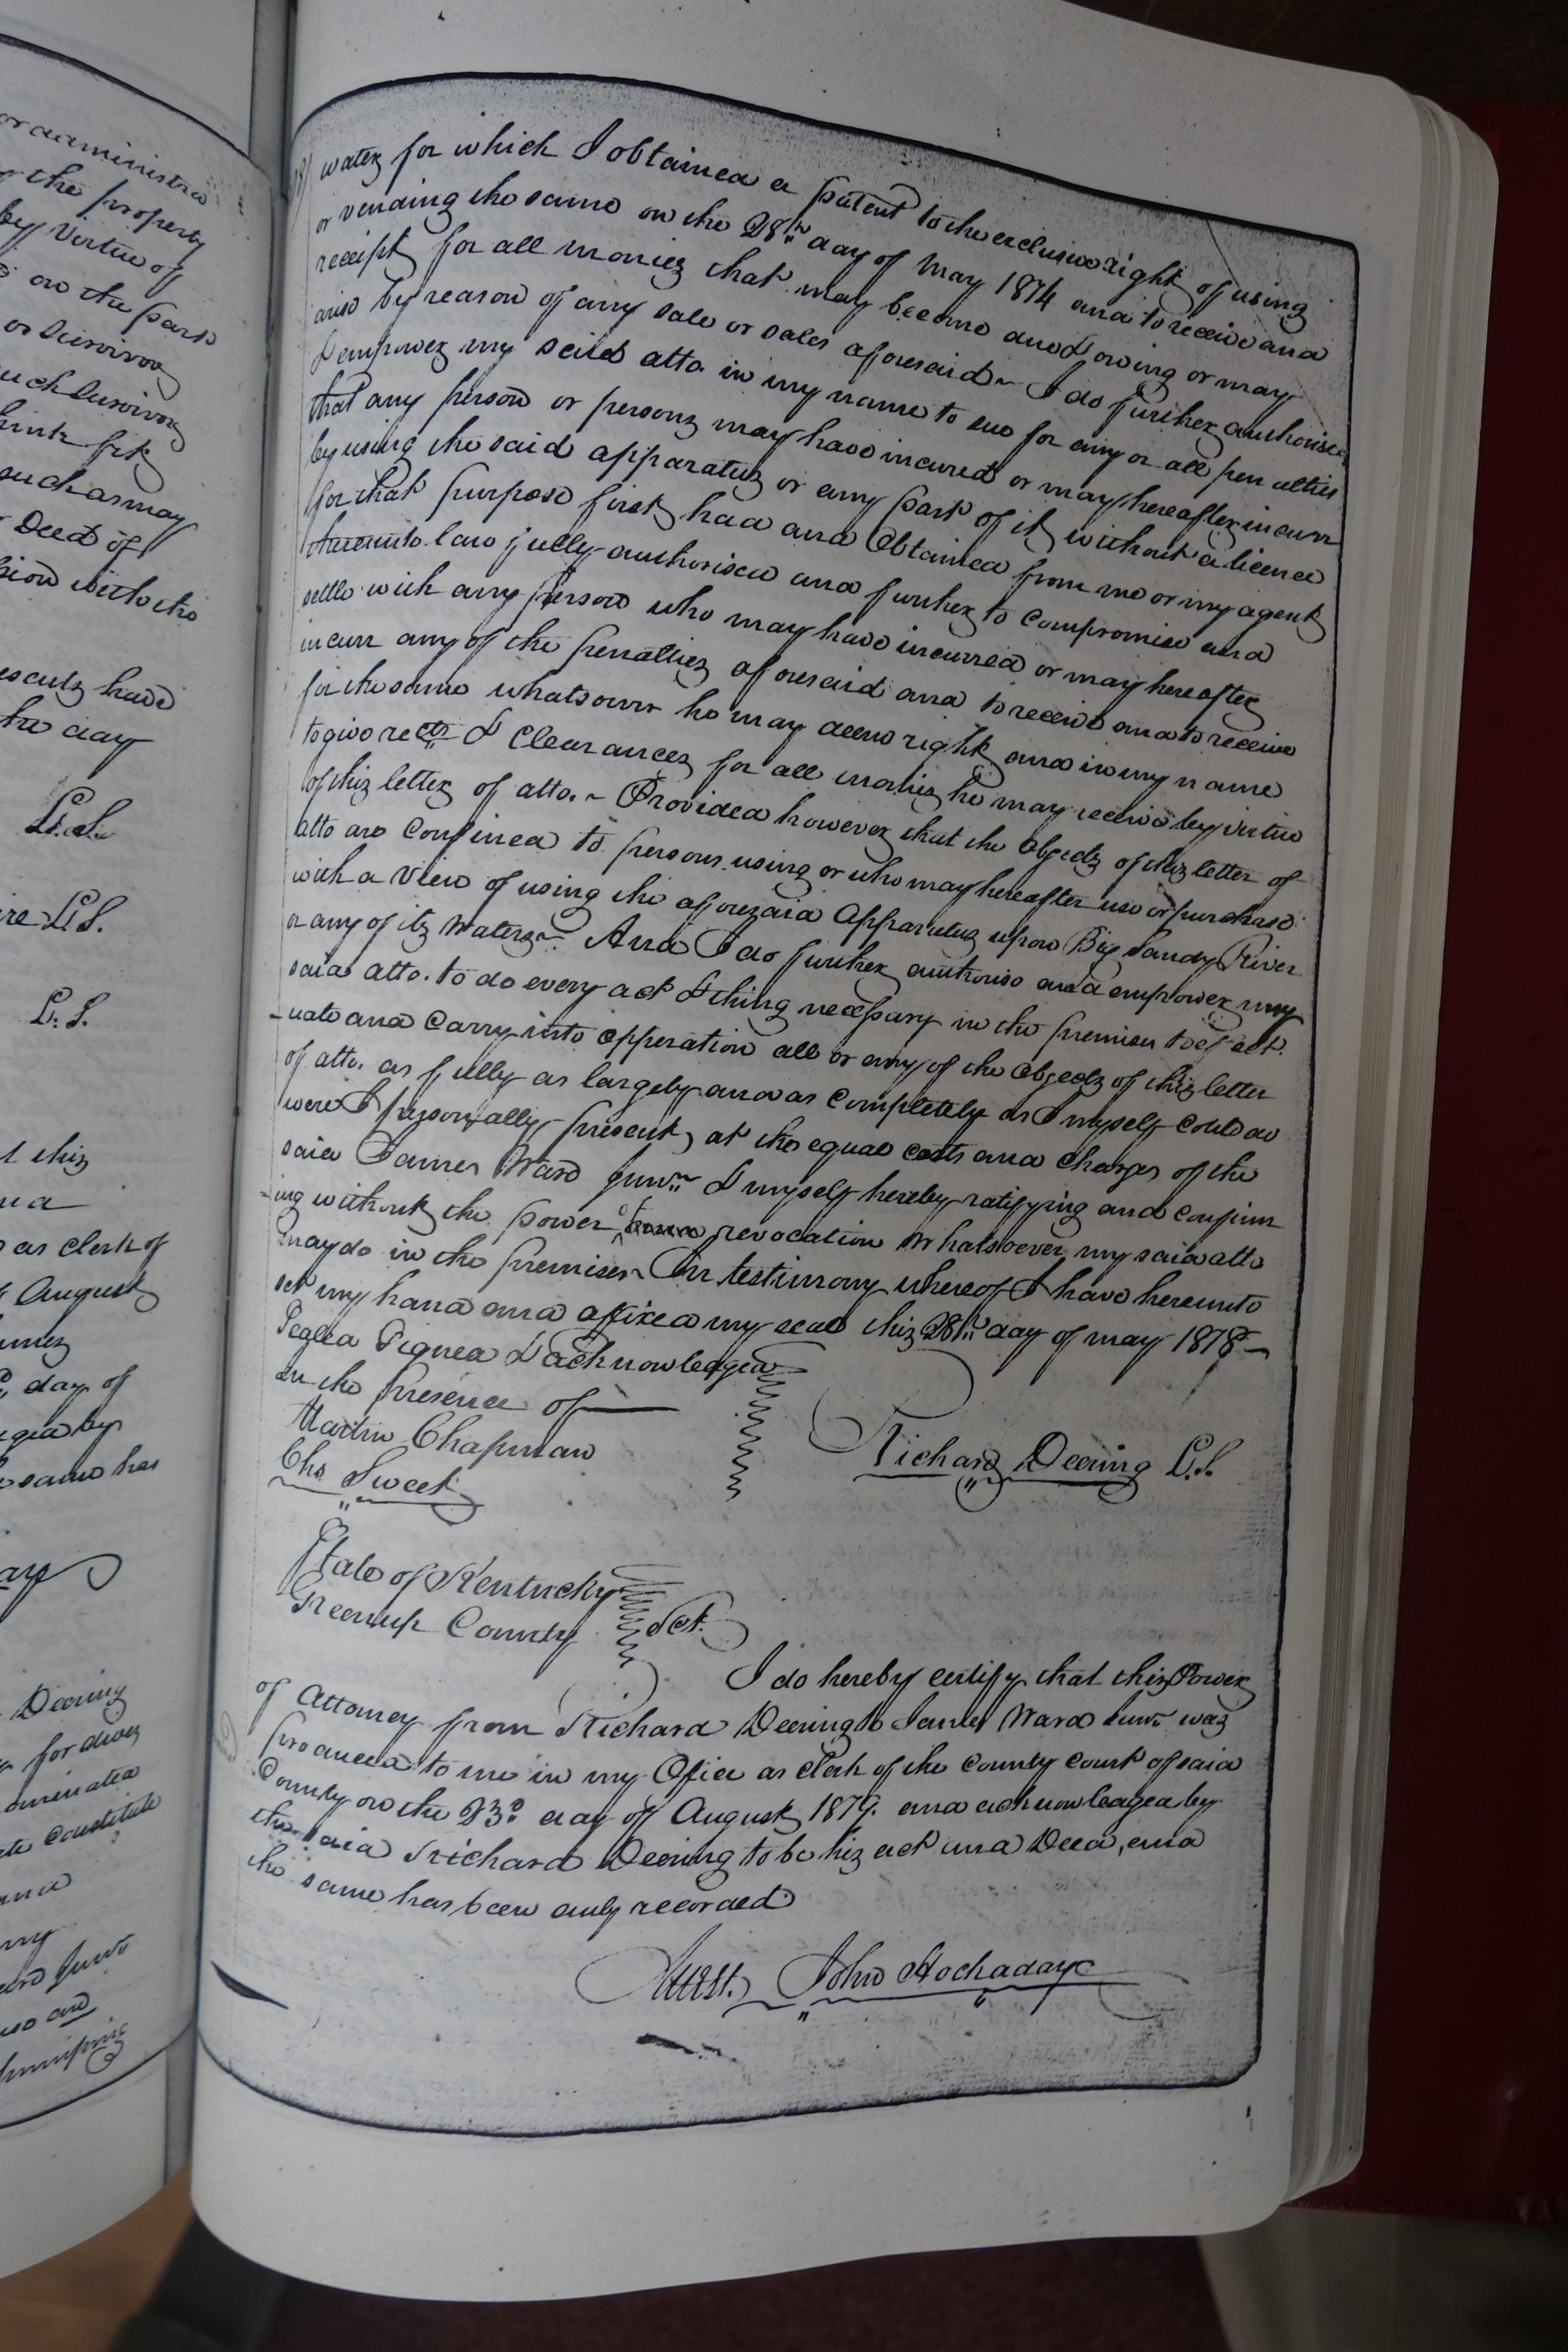 or administra
the property
by Virtue of
on the part
or Survivor
uch Survivor
think fit
such as may
Deed of
sion with the
esents have
the day
L.S.
re L.S.
L.S.
this
as clerk of
August
day of
ged by
same has
Deering
for divers
ominated
te Constitute
my
ard Junr
water for which I obtained a patent to the exclusive right of using
or vending the same on the 28th day of May 1814 and to receive and
receipt for all moneys that may become due & owing or may
arise by reason of any sale or sales aforesaid ~ I do further authorise
& empower my said atto. in my name to sue for any or all penalties
that any person or persons may have incured or may hereafter incurr
by using the said apparatus or any part of it without a licence
for that purpose first had and obtained from me or my agent
thereunto law fully authorised and further to compromise and
settle with any person who may have incurred or may hereafter
incurr any of the penalties aforesaid and to receive and to receive
for the same whatsoever he may deem right and in my name
to give rects & Clearances for all monies he may receive by virtue
of this letter of atto. ~ Provided however that the Objects of this letter of
atto are Confined to persons using or who may hereafter use or purchase
with a View of using the aforesaid Apparatus upon Big Sandy River
or any of its Waters ~ And I do further authorise and empower my
said atto. to do every act & thing necessary in the premises to effect
-uate and Carry into opperation all or any of the Objects of this letter
of atto. as fully as largely and as Completely as I myself could do
were I personally present, at the equal costs and charges of the
said James Ward Junr & myself hereby ratifying and confirm
-ing without the power of revocation Whatsoever my said atto
may do in the premises ~ In testimony whereof I have hereunto
set my hand and affixed my seal this 28th day of may 1818 ~
Sealed Signed & acknowledged
In the Presence of
Martin Chapman
Chs Sweet
Richard Deering L.S.
State of Kentucky
Greenup County Sct.
I do hereby certify that this Power
of Attorney from Richard Deering to James Ward Junr was
produced to me in my Office as Clerk of the County Court of said
County on the 23d day of August 1819. and acknowledged by
the said Richard Deering to be his act and Deed, and
the same has been duly recorded
Attest. John Hockaday